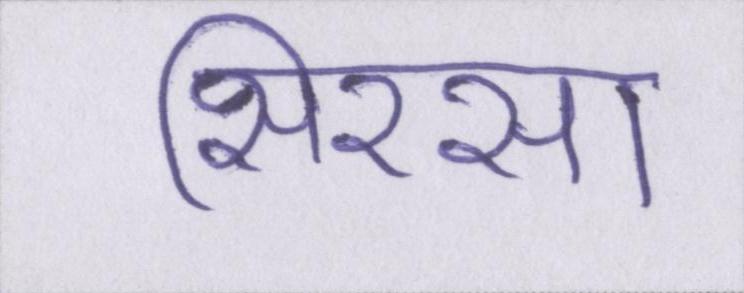 सिरसा